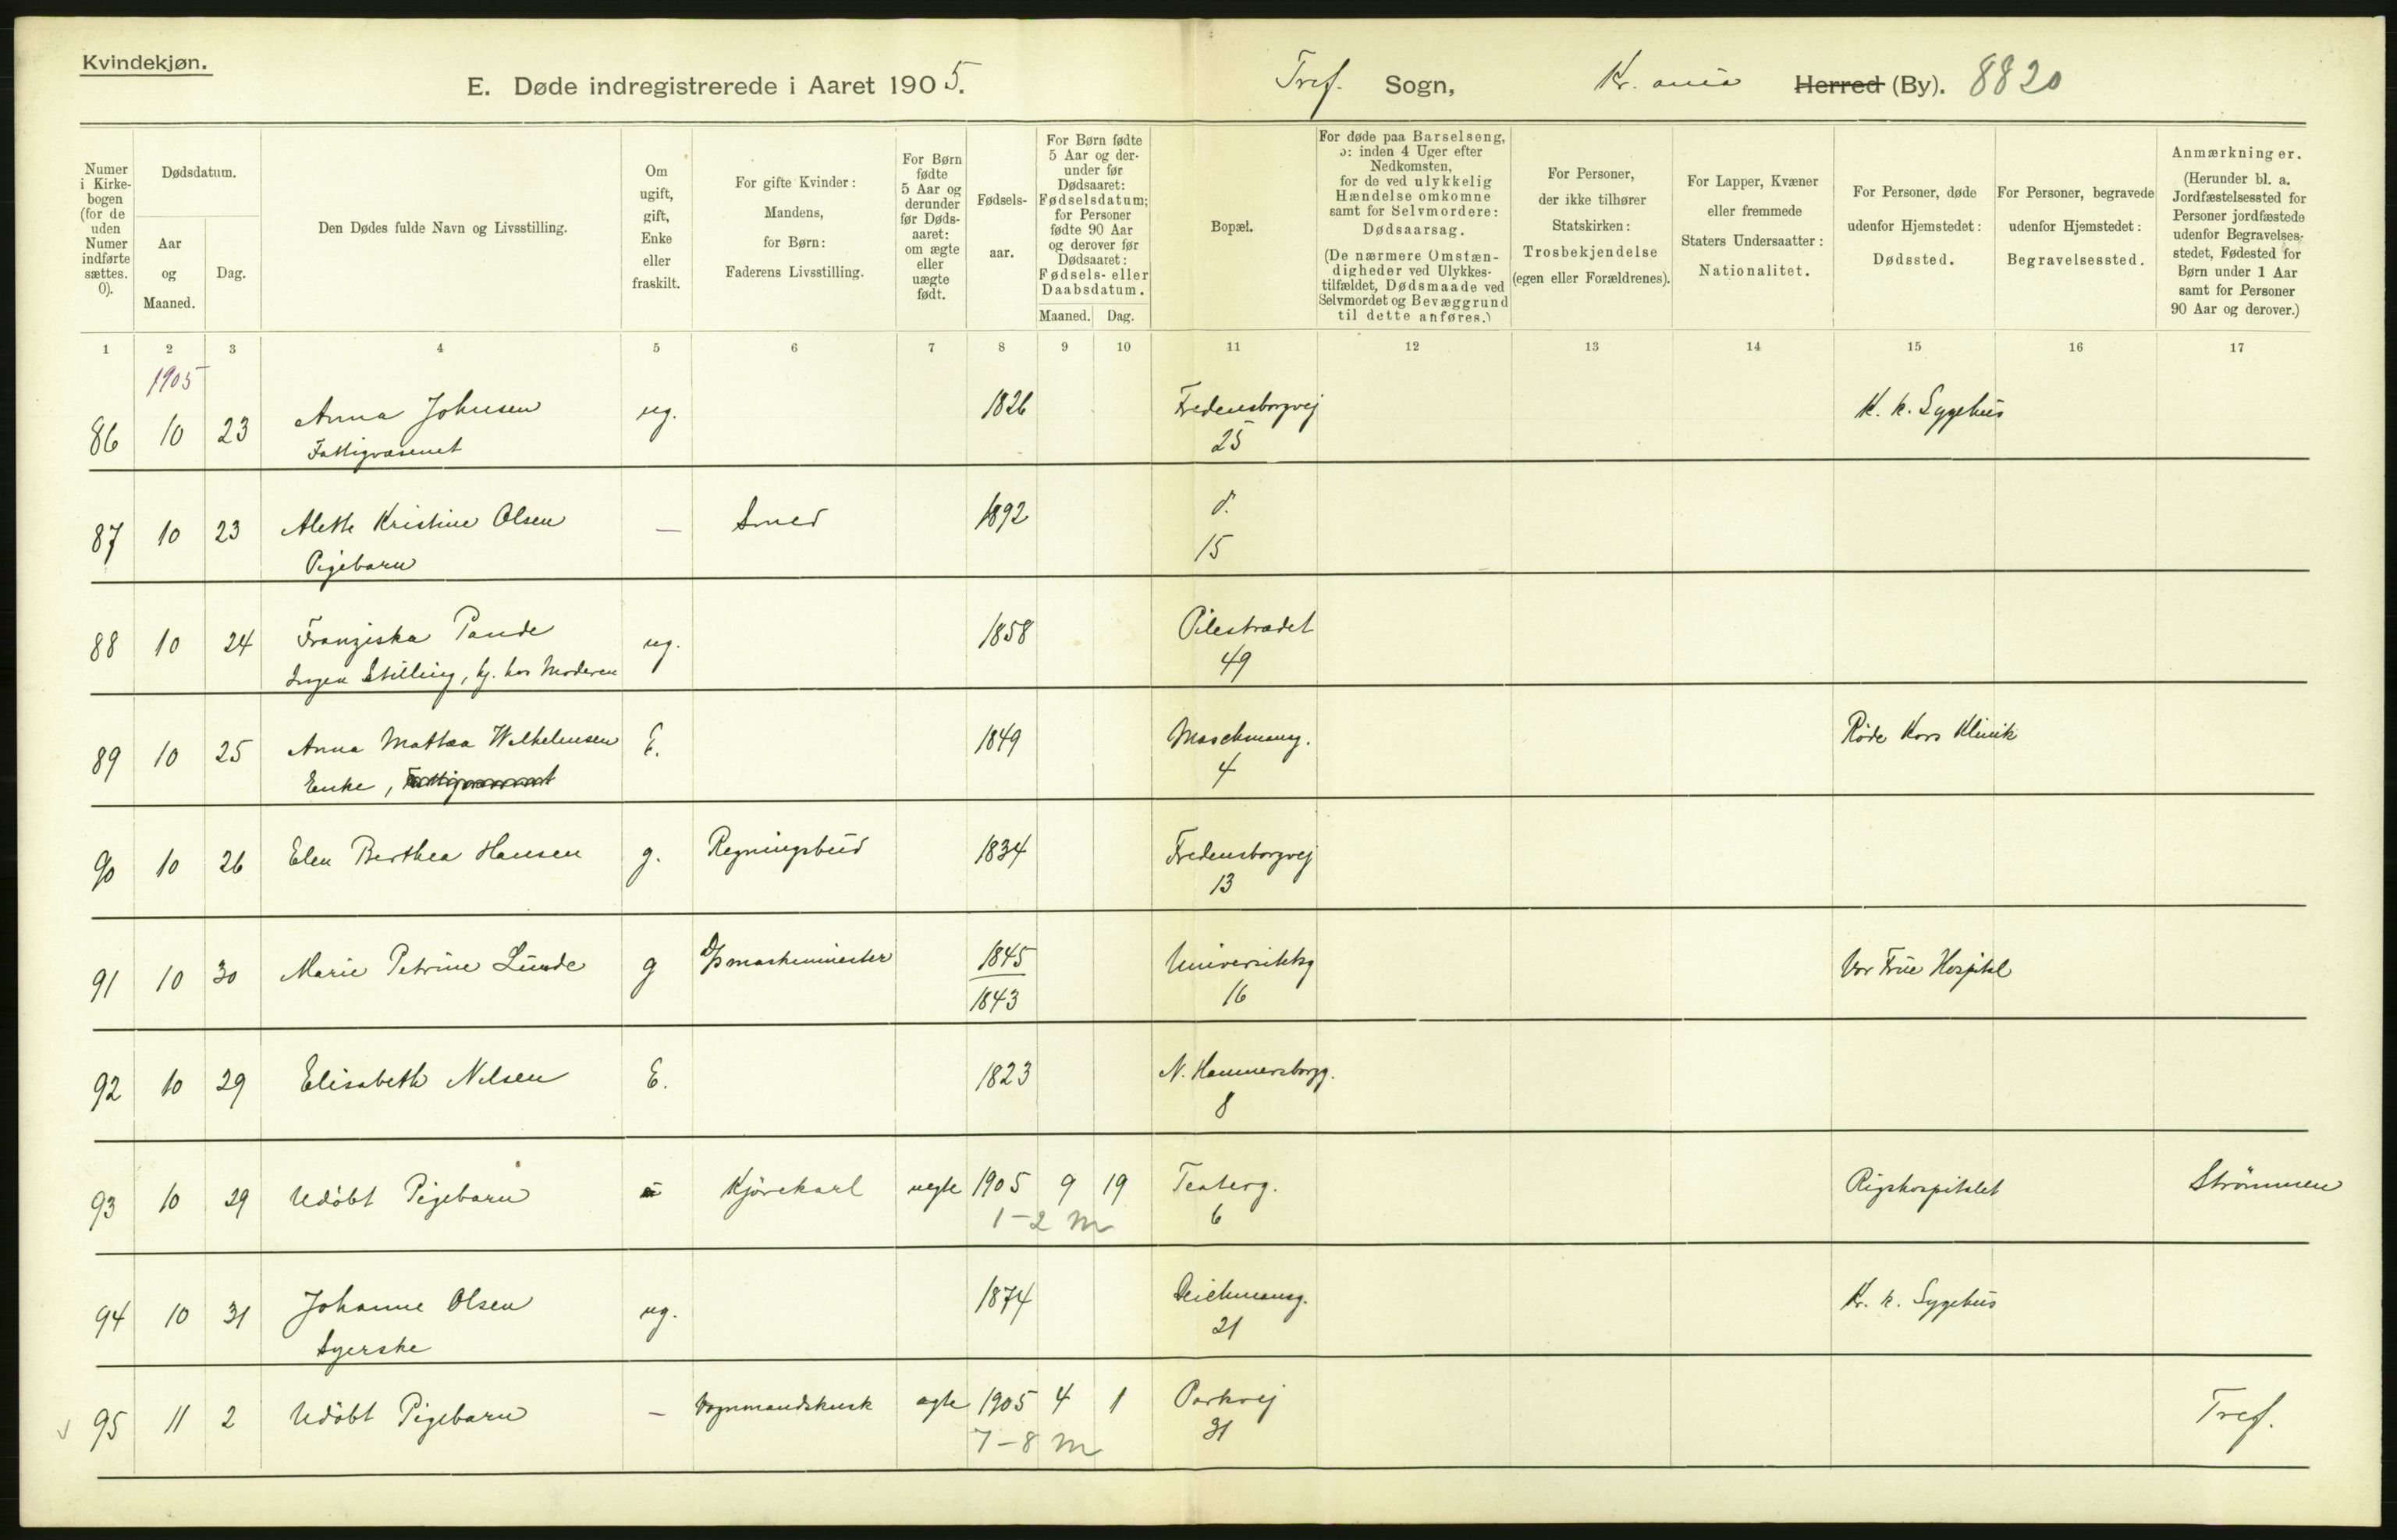 Kvindekjøn.
E. Døde indregistrerede i Aaret 1905. Tref. Sogn, Kr. ania Herred (By). 8820
Numer i Kirkebogen (for de uden Numer indførte sættes. 0).
Dødsdatum.
Aar og Maaned.
Dag.
Den Dødes fulde Navn og Livsstilling.
Om ugift, gift, Enke eller fraskilt.
For gifte Kvinder: Mandens, for Børn: Faderens Livsstilling.
For Børn fødte 5 Aar og derunder før Dødsaaret: om ægte eller uægte født.
Fødselsaar.
For Børn fødte 5 Aar og derunder før Dødsaaret: Fødselsdatum; for Personer fødte 90 Aar og derover før Dødsaaret: Fødsels- eller Daabsdatum.
Maaned. Dag.
Bopæl.
For døde paa Barselseng, ɔ: inden 4 Uger efter Nedkomsten, for de ved ulykkelig Hændelse omkomne samt for Selvmordere: Dødsaarsag.
(De nærmere Omstændigheder ved Ulykkestilfældet, Dødsmaade ved Selvmordet og Bevæggrund til dette anføres.)
For Personer, der ikke tilhører Statskirken: Trosbekjendelse (egen eller Forældrenes).
For Lapper, Kvæner eller fremmede Staters Undersaatter: Nationalitet.
For Personer, døde udenfor Hjemstedet: Dødssted.
For Personer, begravede udenfor Hjemstedet: Begravelsessted.
Anmærkninger.
(Herunder bl. a. Jordfæstelsessted for Personer jordfæstede udenfor Begravelsesstedet, Fødested for Børn under 1 Aar samt for Personer 90 Aar og derover.)
1 2 3 4 5 6 7 8 9 10 11 12 13 14 15 16 17
1905
86 10 23 Anna Johnsen ug. 1826 Fredensborgvej K. k. Sygehus
Fattigvæsenet 25
87 10 23 Alette Kristine Olsen — Smed 1892 d.
Pigebarn 15
88 10 24 Franziska Pande ug. 1858 Pilestrædet
Ingen Stilling, hj. hos Moderen 49
89 10 25 Anna Mathea Wilhelmsen E. 1849 Maschmang. Røde Kors Klinik
Enke, 4
90 10 26 Elen Berthea Hansen g. Regningsbud 1834 Fredensborgvej
13
91 10 30 Marie Petrine Lunde g D/smaskinmester 1845 Universitetsg Vor Frue Hospital
1843 16
92 10 29 Elisabeth Nilsen E. 1823 N. Hammersborgg.
8
93 10 29 Udöbt Pigebarn Kjörekarl uegte 1905 9 19 Teaterg. Rigshospitalet Strömmen
1-2 m 6
94 10 31 Johanne Olsen ug. 1874 Deichmansg. Kr. k. Sygehus
Syerske 21
95 11 2 Udöbt Pigebarn — Vognmandskusk ægte 1905 4 1 Parkvej Tref.
7-8 m 31